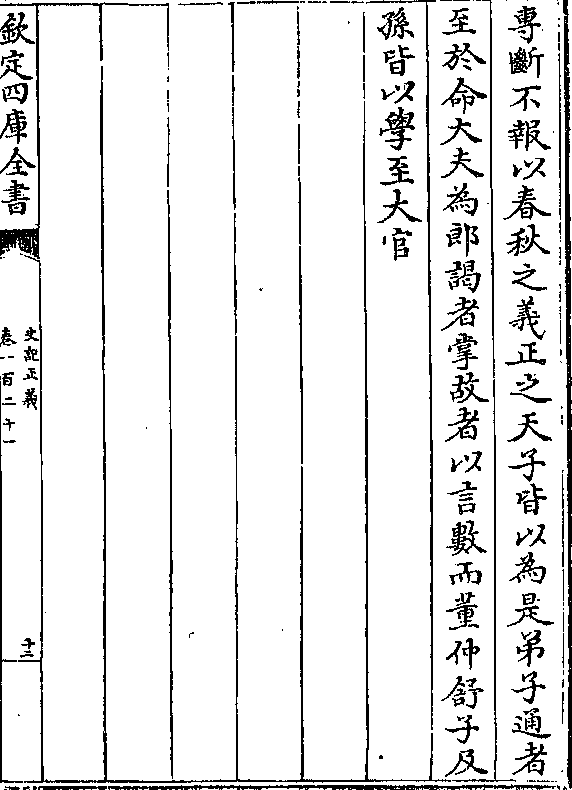 專斷不報以春秋之義正之天子皆以為是弟子通者
至於命大夫為郎謁者掌故者以言數而董仲舒子及
孫皆以學至大官
欽定四庫全書
史記正義
卷一百二十一
十三